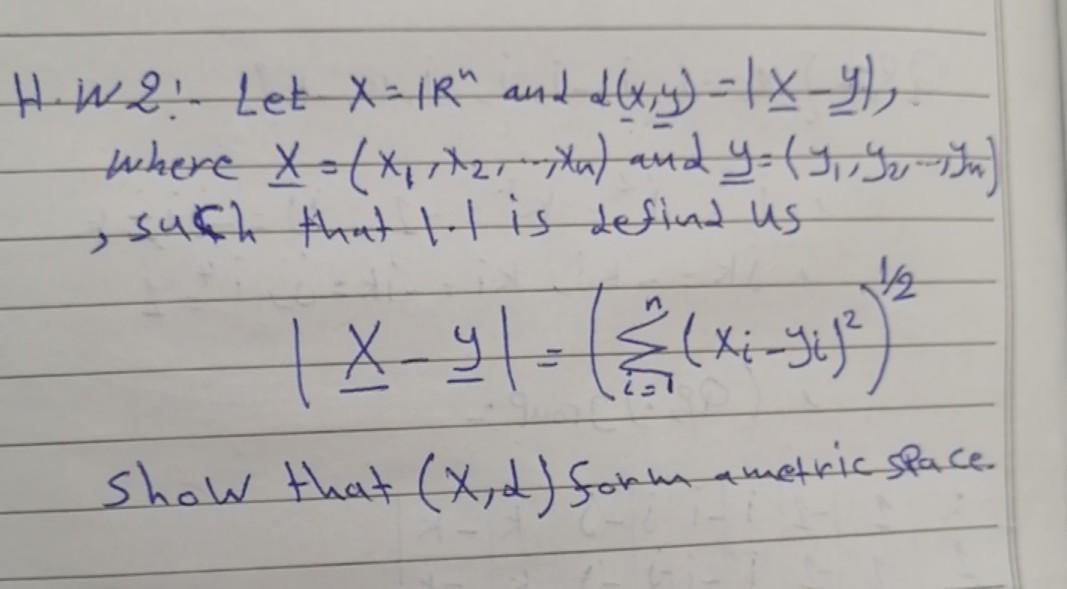 H.W2:- Let X=ℝⁿ and d(x,y)=|x-y|,
where x=(x₁,x₂,...,xₙ) and y=(y₁,y₂,...,yₙ)
, such that |.| is defind us
|x-y|=(∑ᵢ₌₁ⁿ(xᵢ-yᵢ)²)^1/2
show that (X,d) form a metric space.